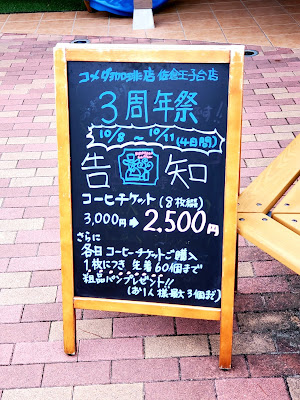 コメダ珈琲店 佐倉王子台店
3周年祭
10/8 〜 10/11 (4日間)
告 知
コーヒーチケット (8枚綴)
3,000円 → 2,500円
さらに
各日コーヒーチケットご購入
1枚につき 先着60個まで
粗品パンプレゼント!!
(お1人様最大3個まで)